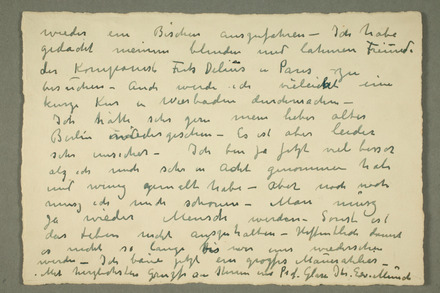 wieder ein Bischen auszufahren – Ich habe
gedacht meinem blinden und lahmen Freund
der Komponist Fritz Delius in Paris zu
besuchen – Auch werde ich vieleicht eine
kurze Kur in Wiesbaden durchmachen –
Ich hätte sehr gern mein liebes altes
Berlin wiedergesehen – Es ist aber leider
sehr unsicher – Ich bin ja jetzt viel besser
als ich mich sehr in Acht genommen habe
und wenig gemalt habe – aber noch noch
muss ich mich schonen – Man muss
ja wieder Mensch werden – Sonst ist
das Leben nicht auszuhalten – Hoffentlich dauert
es nicht so lange bis wir uns wiedersehen
werde – Ich baue jetzt ein grosses Maleratelier –
Mit herzlichsten Grüssen an Herrn und Prof. Glaser Ihr Edv. Munch